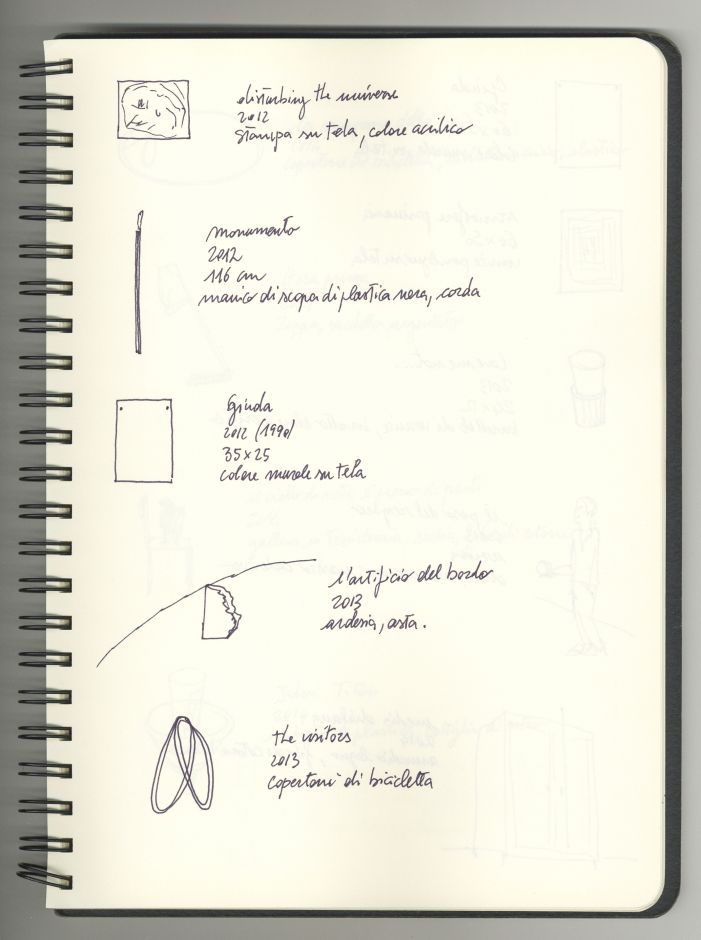 disturbing the universe
2012
stampa su tela, colore acrilico
monumento
2012
116 cm
manico di scopa di plastica nera, corda
2012 (1990)
35x25
colore murale su tela
l'artificio del bordo
2013
ardesia, asta.
the visitors
2013
copertoni di bicicletta